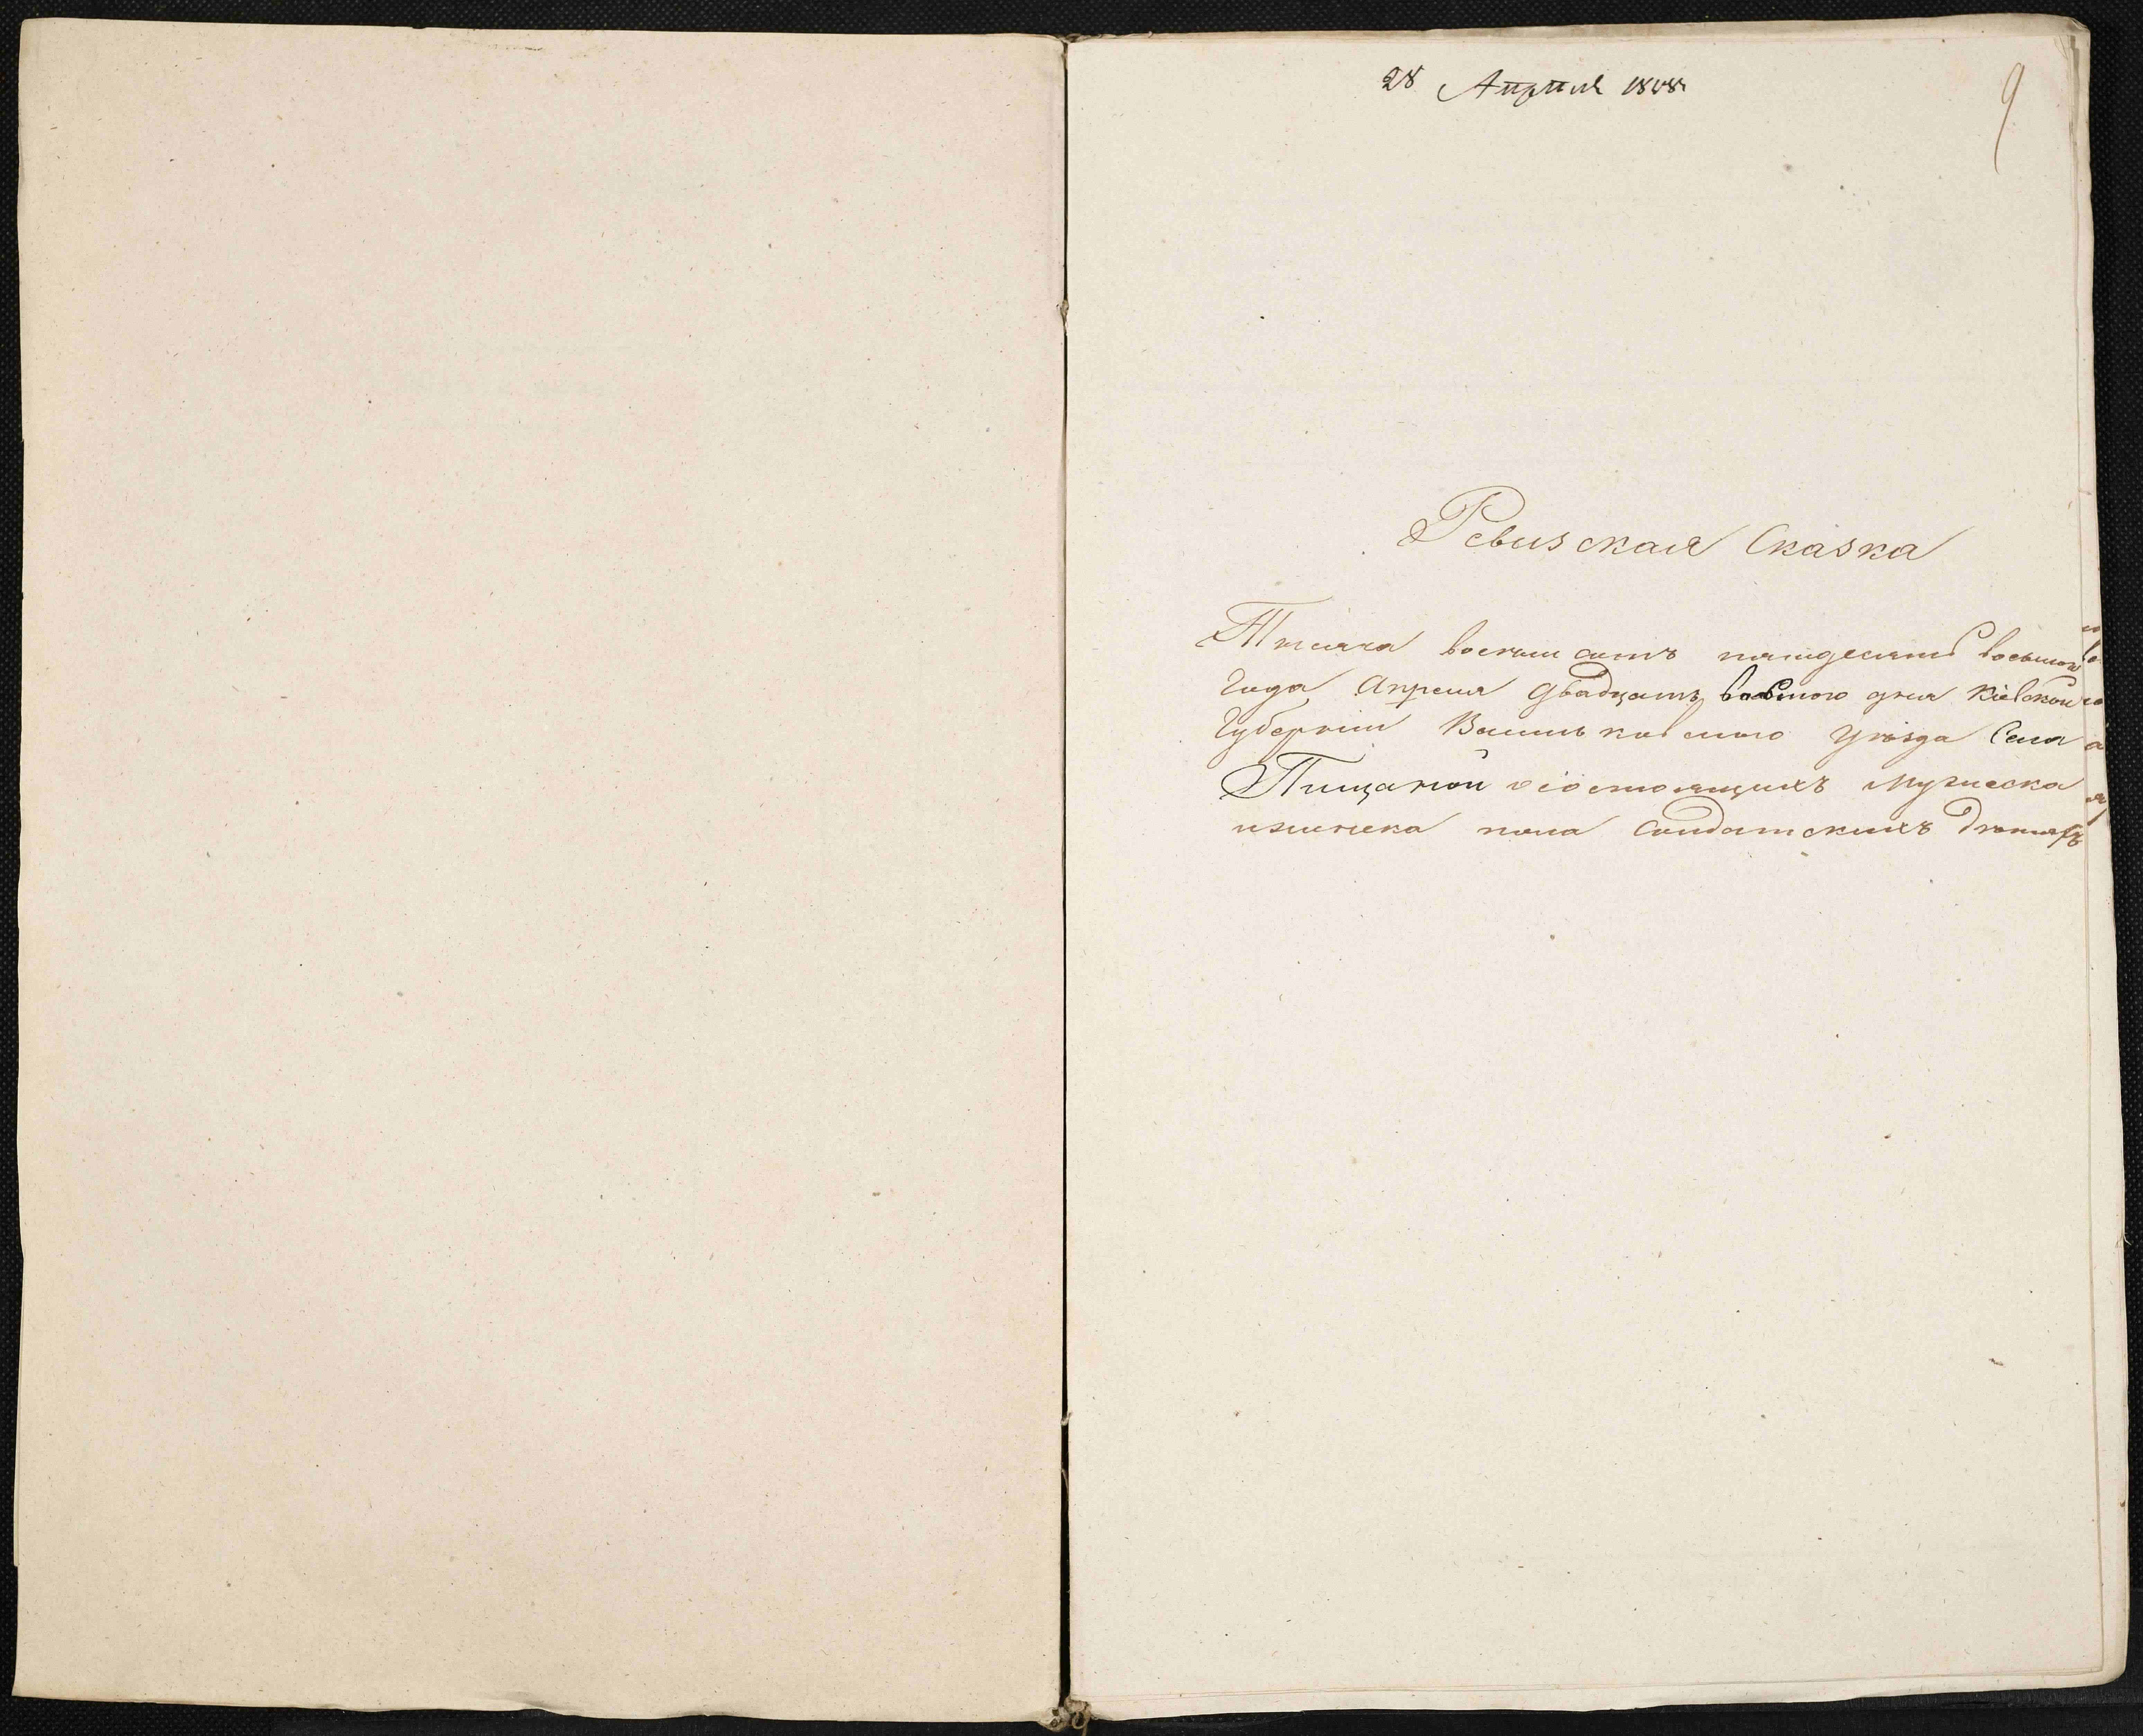 28 Апреля 1858
9
Ревизская Сказка
Тысяча восемь сотъ пятидесятъ восьмого
Года Апреля двадцать восьмого дня Кіевской
Губерніи Васильковского Уѣзда Села
Пищаной осостоящихъ Мужеска
иженска пола Солдатскихъ Дѣтяхъ